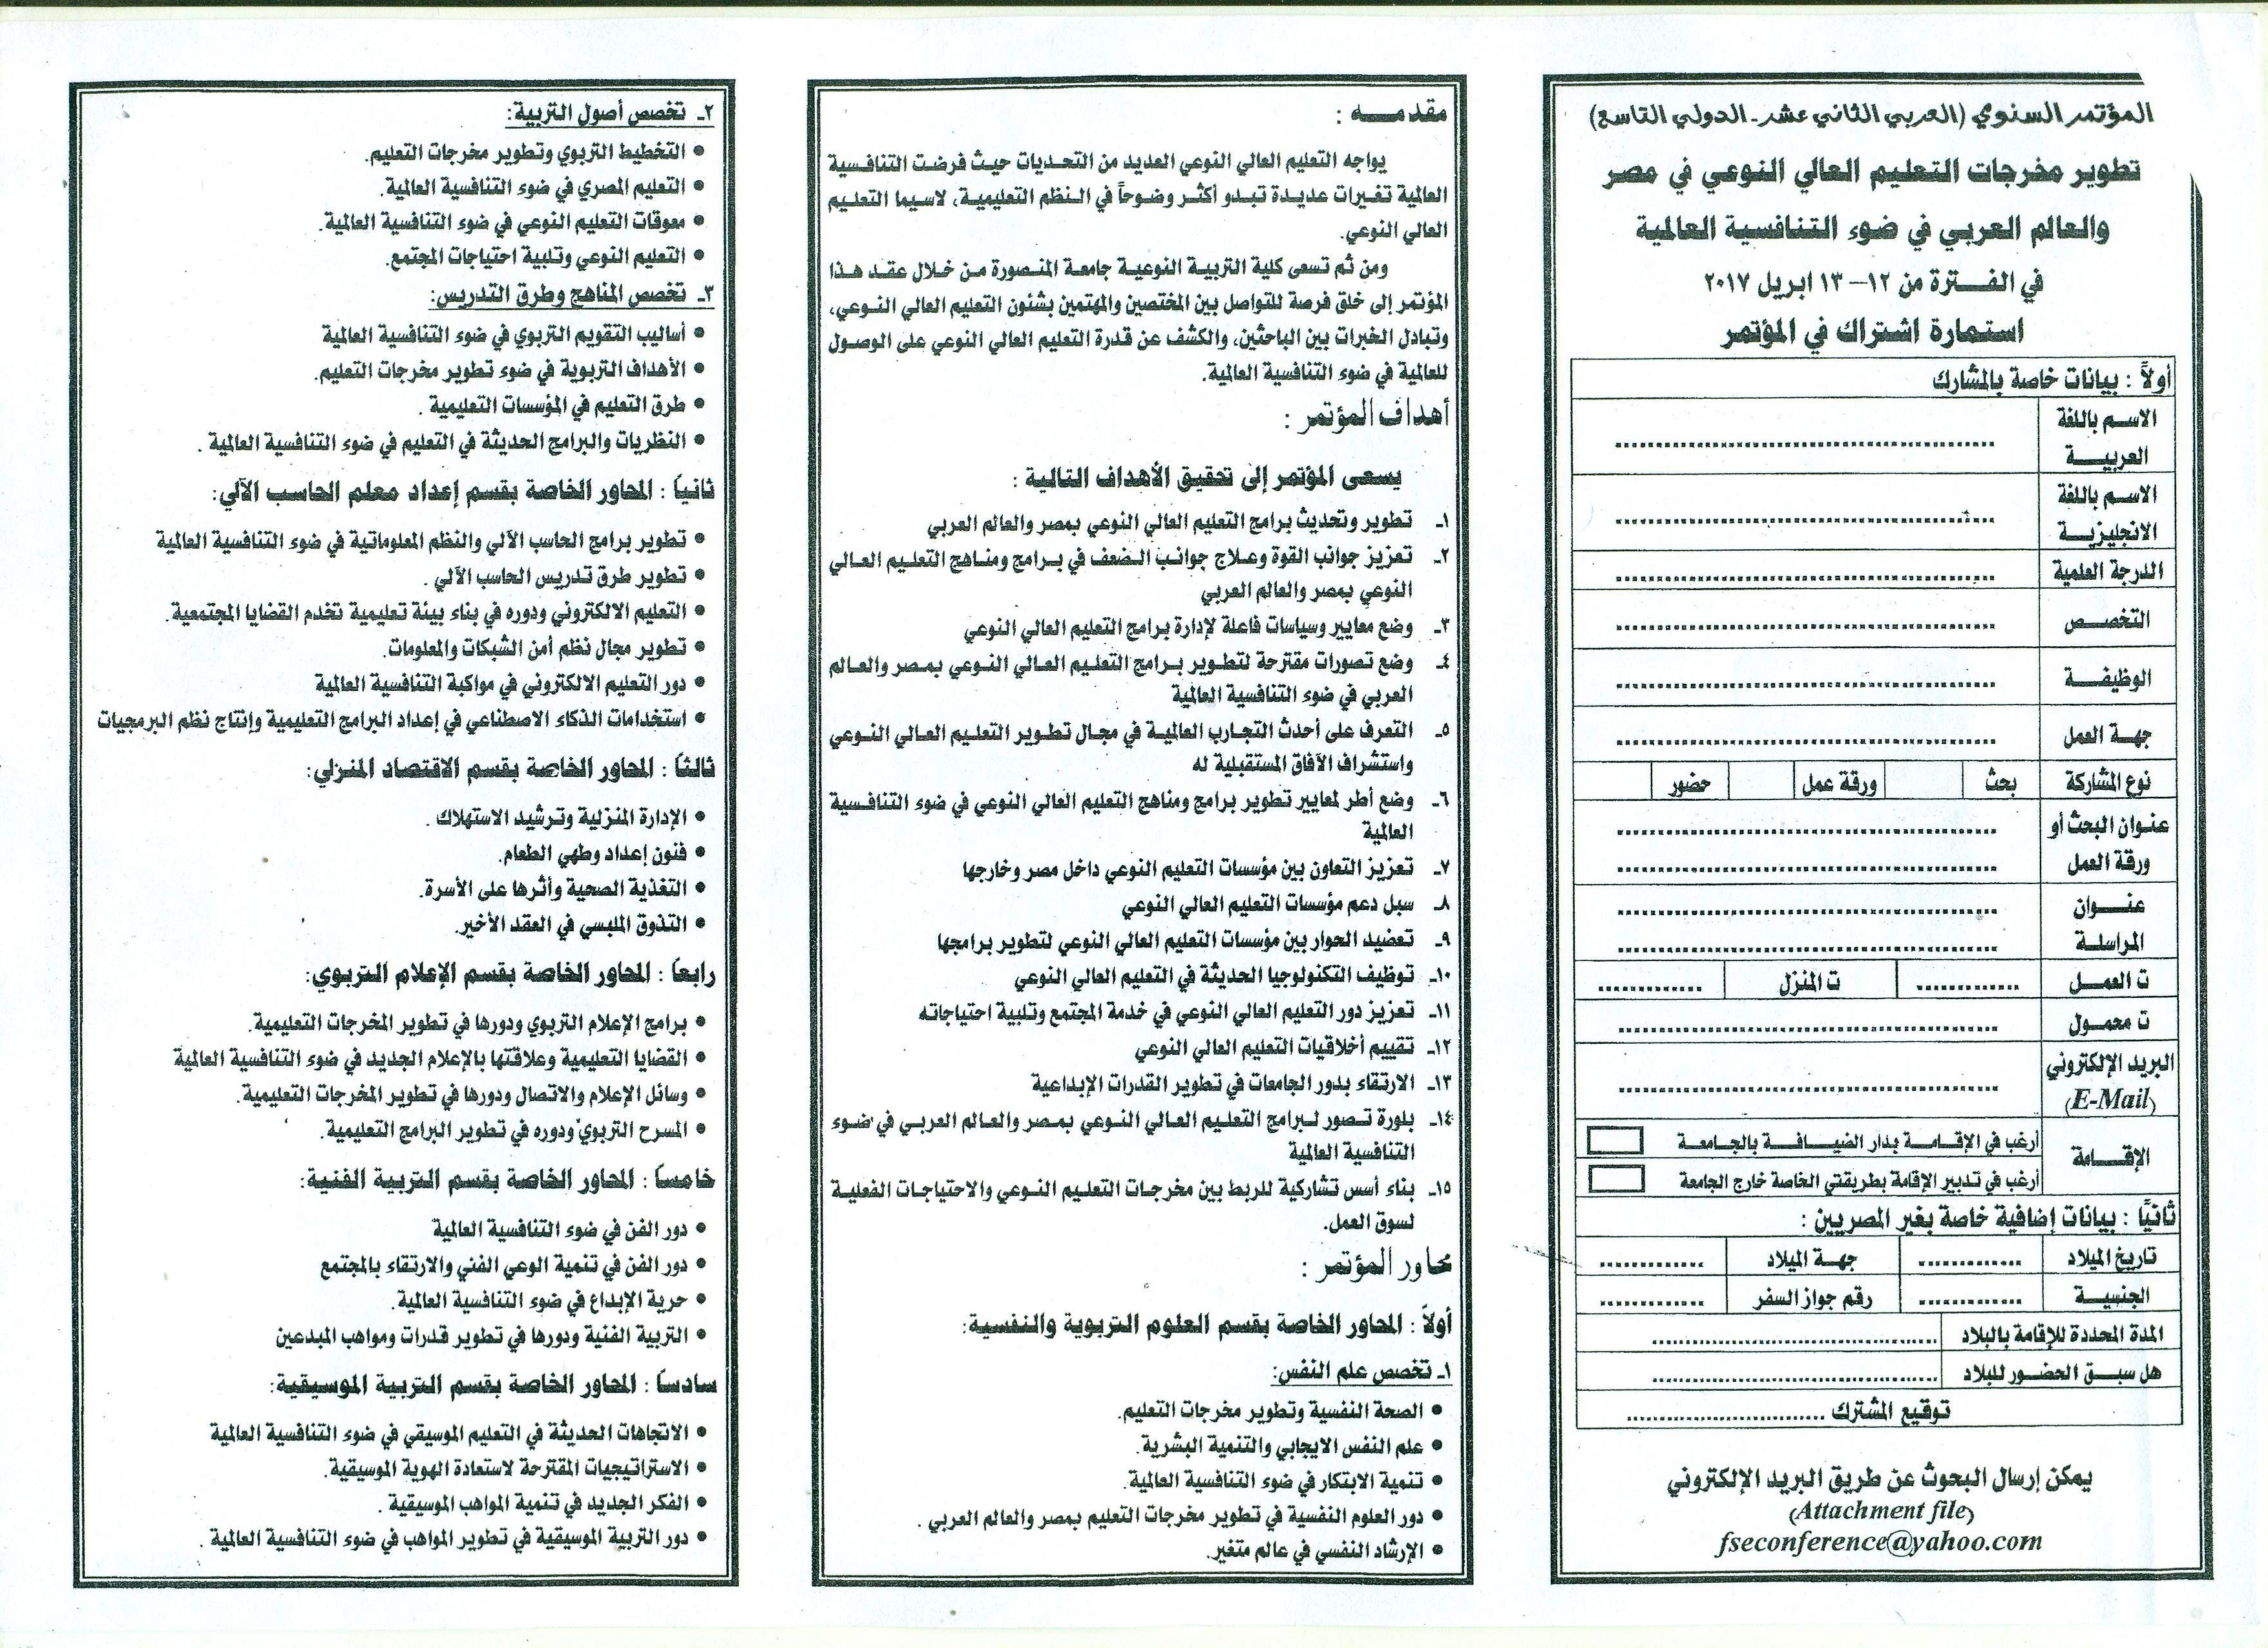 المؤتمر السنوي (العربي الثاني عشر - الدولي التاسع)
تطوير مخرجات التعليم العالي النوعي في مصر
والعالم العربي في ضوء التنافسية العالمية
في الفترة من ١٢- ١٣ ابريل ٢٠١٧
استمارة اشتراك في المؤتمر
أولاً : بيانات خاصة بالمشارك
الاسم باللغة
العربية
الاسم باللغة
الانجليزية
الدرجة العلمية
التخصص
الوظيفة
جهة العمل
نوع المشاركة بحث ورقة عمل حضور
عنوان البحث أو
ورقة العمل
عنوان
المراسلة
ت العمل ............. ت المنزل .............
ت محمول
البريد الإلكتروني
(E-Mail)
الإقامة
أرغب في الإقامة بدار الضيافة بالجامعة
أرغب في تدبير الإقامة بطريقتي الخاصة خارج الجامعة
ثانيًا : بيانات إضافية خاصة بغير المصريين :
تاريخ الميلاد ............. جهة الميلاد .............
الجنسية ............. رقم جواز السفر .............
المدة المحددة للإقامة بالبلاد
هل سبق الحضور للبلاد
توقيع المشترك .........................
يمكن إرسال البحوث عن طريق البريد الإلكتروني
(Attachment file)
fseconference@yahoo.com
مقدمه :
يواجه التعليم العالي النوعي العديد من التحديات حيث فرضت التنافسية
العالمية تغيرات عديدة تبدو أكثر وضوحاً في النظم التعليمية، لاسيما التعليم
العالي النوعي.
ومن ثم تسعى كلية التربية النوعية جامعة المنصورة من خلال عقد هذا
المؤتمر إلى خلق فرصة للتواصل بين المختصين والمهتمين بشئون التعليم العالي النوعي،
وتبادل الخبرات بين الباحثين، والكشف عن قدرة التعليم العالي النوعي على الوصول
للعالمية في ضوء التنافسية العالمية.
أهداف المؤتمر :
يسعى المؤتمر إلى تحقيق الأهداف التالية :
١ـ تطوير وتحديث برامج التعليم العالي النوعي بمصر والعالم العربي
٢ـ تعزيز جوانب القوة وعلاج جوانب الضعف في برامج ومناهج التعليم العالي
النوعي بمصر والعالم العربي
٣ـ وضع معايير وسياسات فاعلة لإدارة برامج التعليم العالي النوعي
٤ـ وضع تصورات مقترحة لتطوير برامج التعليم العالي النوعي بمصر والعالم
العربي في ضوء التنافسية العالمية
٥ـ التعرف على أحدث التجارب العالمية في مجال تطوير التعليم العالي النوعي
واستشراف الآفاق المستقبلية له
٦ـ وضع أطر لمعايير تطوير برامج ومناهج التعليم العالي النوعي في ضوء التنافسية
العالمية
٧ـ تعزيز التعاون بين مؤسسات التعليم النوعي داخل مصر وخارجها
٨ـ سبل دعم مؤسسات التعليم العالي النوعي
٩ـ تعضيد الحوار بين مؤسسات التعليم العالي النوعي لتطوير برامجها
١٠ـ توظيف التكنولوجيا الحديثة في التعليم العالي النوعي
١١ـ تعزيز دور التعليم العالي النوعي في خدمة المجتمع وتلبية احتياجاته
١٢ـ تقييم أخلاقيات التعليم العالي النوعي
١٣ـ الارتقاء بدور الجامعات في تطوير القدرات الإبداعية
١٤ـ بلورة تصور لبرامج التعليم العالي النوعي بمصر والعالم العربي في ضوء
التنافسية العالمية
١٥ـ بناء أسس تشاركية للربط بين مخرجات التعليم النوعي والاحتياجات الفعلية
لسوق العمل.
محاور المؤتمر :
أولاً : المحاور الخاصة بقسم العلوم التربوية والنفسية:
١ـ تخصص علم النفس:
• الصحة النفسية وتطوير مخرجات التعليم.
• علم النفس الايجابي والتنمية البشرية.
• تنمية الابتكار في ضوء التنافسية العالمية.
• دور العلوم النفسية في تطوير مخرجات التعليم بمصر والعالم العربي .
• الإرشاد النفسي في عالم متغير.
٢ـ تخصص أصول التربية:
• التخطيط التربوي وتطوير مخرجات التعليم.
• التعليم المصري في ضوء التنافسية العالمية.
• معوقات التعليم النوعي في ضوء التنافسية العالمية.
• التعليم النوعي وتلبية احتياجات المجتمع.
٣ـ تخصص المناهج وطرق التدريس:
• أساليب التقويم التربوي في ضوء التنافسية العالمية
• الأهداف التربوية في ضوء تطوير مخرجات التعليم.
• طرق التعليم في المؤسسات التعليمية .
• النظريات والبرامج الحديثة في التعليم في ضوء التنافسية العالمية .
ثانياً : المحاور الخاصة بقسم إعداد معلم الحاسب الآلي:
• تطوير برامج الحاسب الآلي والنظم المعلوماتية في ضوء التنافسية العالمية
• تطوير طرق تدريس الحاسب الآلي .
• التعليم الالكتروني ودوره في بناء بيئة تعليمية تخدم القضايا المجتمعية.
• تطوير مجال نظم أمن الشبكات والمعلومات.
• دور التعليم الالكتروني في مواكبة التنافسية العالمية
• استخدامات الذكاء الاصطناعي في إعداد البرامج التعليمية وإنتاج نظم البرمجيات
ثالثاً : المحاور الخاصة بقسم الاقتصاد المنزلي:
• الإدارة المنزلية وترشيد الاستهلاك .
• فنون إعداد وطهي الطعام.
• التغذية الصحية وأثرها على الأسرة.
• التذوق الملبسي في العقد الأخير.
رابعاً : المحاور الخاصة بقسم الإعلام التربوي:
• برامج الإعلام التربوي ودورها في تطوير المخرجات التعليمية.
• القضايا التعليمية وعلاقتها بالإعلام الجديد في ضوء التنافسية العالمية
• وسائل الإعلام والاتصال ودورها في تطوير المخرجات التعليمية.
• المسرح التربوي ودوره في تطوير البرامج التعليمية.
خامساً : المحاور الخاصة بقسم التربية الفنية:
• دور الفن في ضوء التنافسية العالمية
• دور الفن في تنمية الوعي الفني والارتقاء بالمجتمع
• حرية الإبداع في ضوء التنافسية العالمية.
• التربية الفنية ودورها في تطوير قدرات ومواهب المبدعين
سادساً : المحاور الخاصة بقسم التربية الموسيقية:
• الاتجاهات الحديثة في التعليم الموسيقي في ضوء التنافسية العالمية
• الاستراتيجيات المقترحة لاستعادة الهوية الموسيقية.
• الفكر الجديد في تنمية المواهب الموسيقية .
• دور التربية الموسيقية في تطوير المواهب في ضوء التنافسية العالمية .